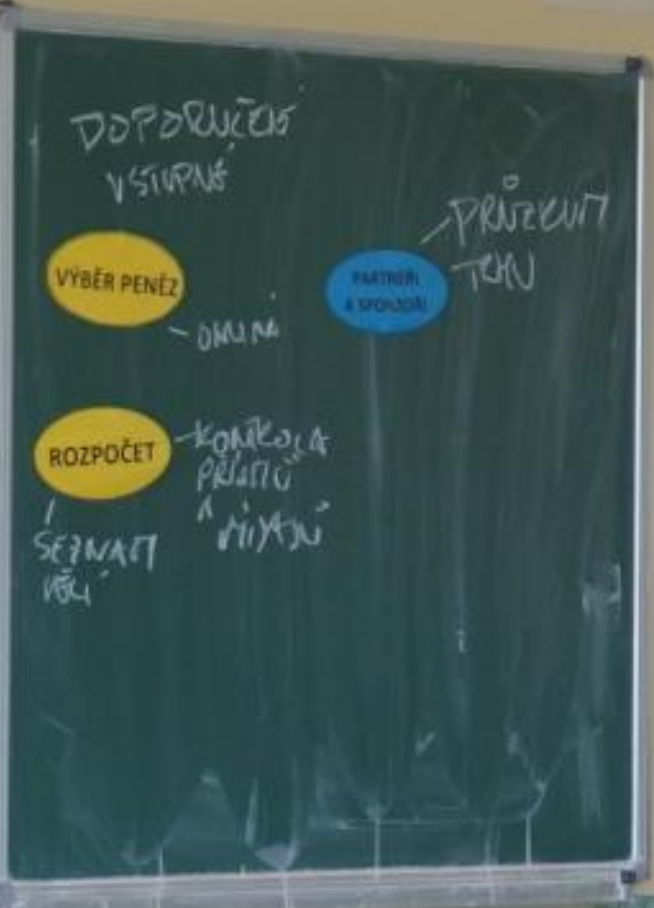 DOPORUČENÉ
VSTUPNÉ
VÝBĚR PENĚZ
PARTNEŘI
A SPONZOŘI
PRŮZKUM
TRHU
ROZPOČET
KONTROLA
PŘÍJMŮ
A
VÝDAJŮ
SEZNAM
VĚCÍ